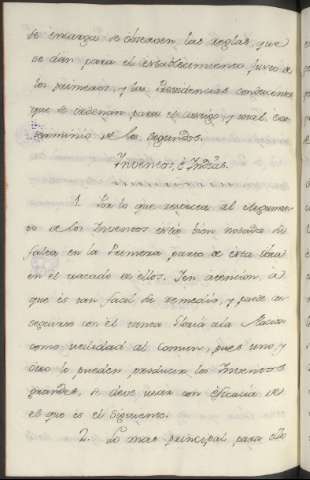 se encarga se observen las reglas, que
se dan para el establecimiento justo de
los primeros, y las Providencias conducentes
que se ordenan para el castigo, y total ex-
terminio de los segundos.
Inventos, è Indias.
1. Por lo que respecta al
to de los Inventos está bien notada su
falta en la Primera parte de esta Obra
en el tratado de ellos. Y en atencion, à
que és tan facil de remedio, y puede con
seguirse con èl tanta Gloria à la Nacion
como utilidad al Comun, pues uno, y
otro lo pueden producir los Inventos
grandes, se debe usar con eficacia de
el que és el siguiente.
2. Lo mas principal para